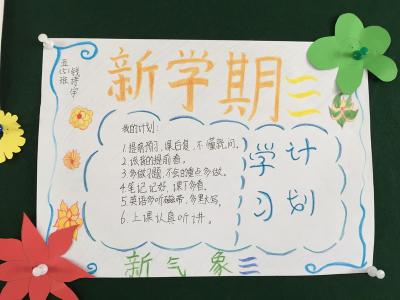 五(5)班
钱诗宇
新学期
我的计划:
1.提前预习,课后复,不懂就问。
2.该背的提前背。
3.多做习题,不会的重点多做。
4.笔记记好,课下多看。
5.英语多听磁带,多默写。
6.上课认真听讲。
学习
计划
新气象